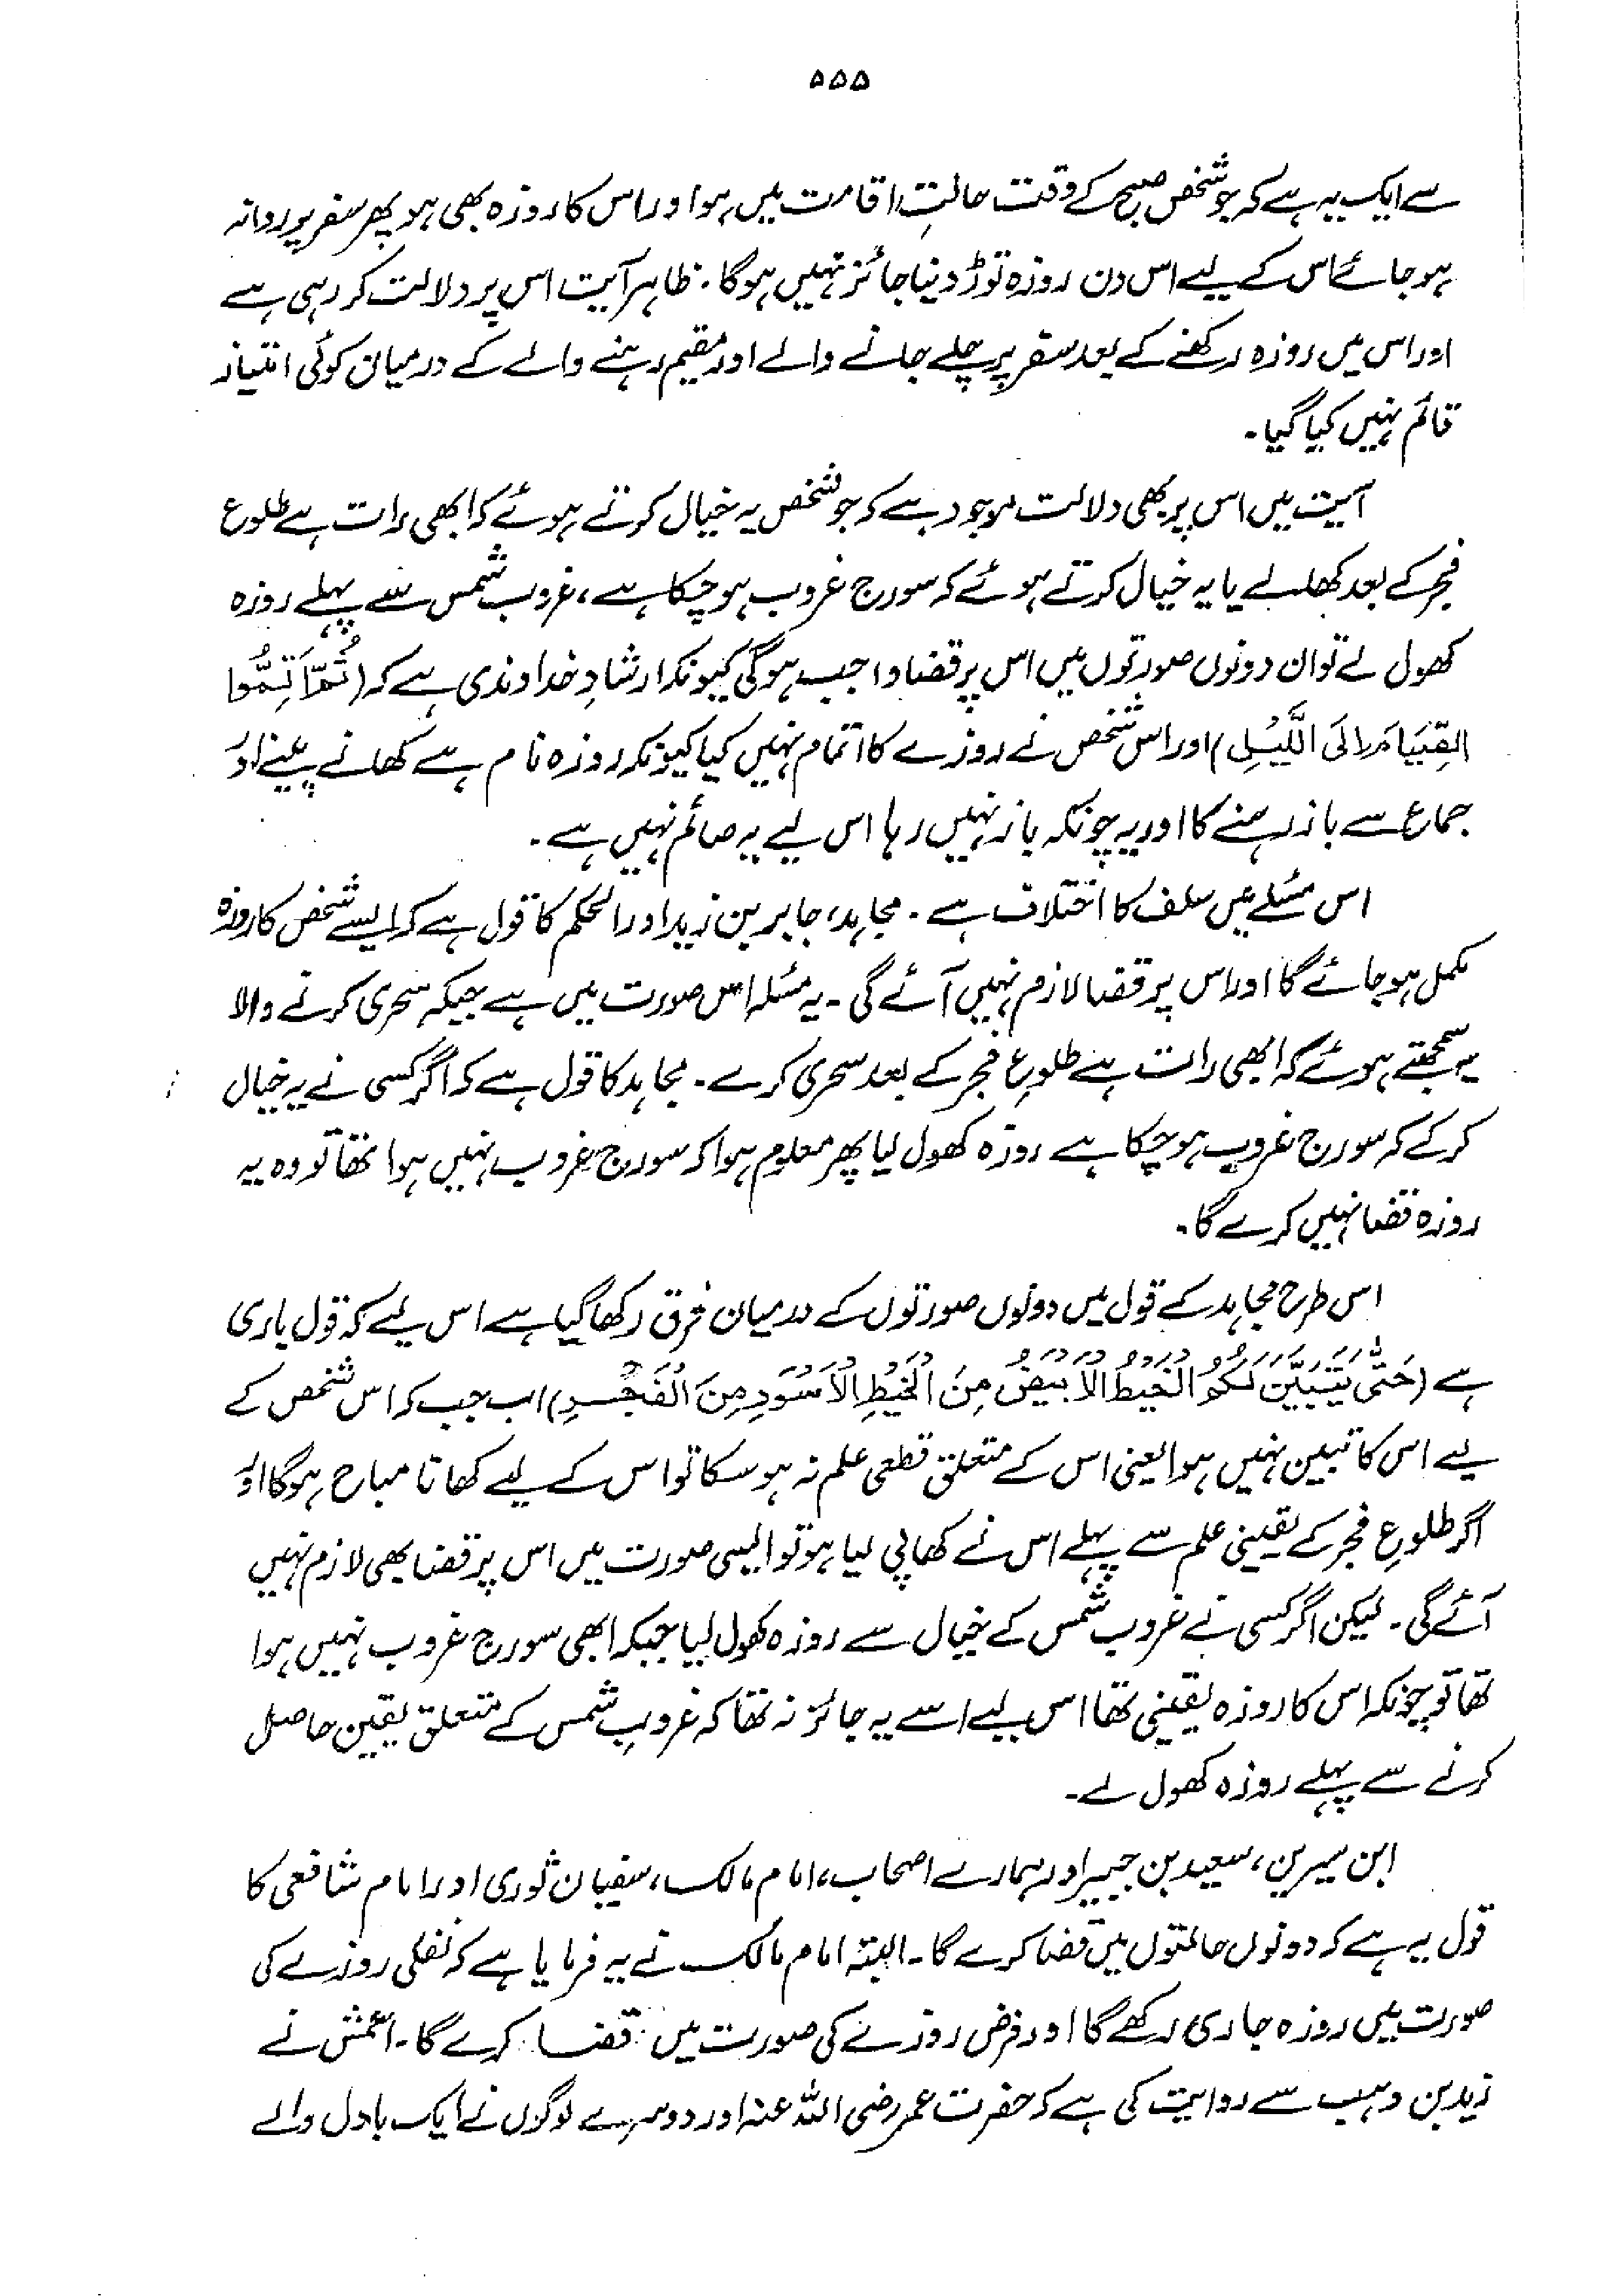 ۵۵۵
سے ایک یہ ہے کہ جو شخص صبح کے وقت حالتِ اقامت میں ہو اور اس کا روزہ بھی ہو پھر سفر پر روانہ
ہو جائے اس کے لیے اس دن روزہ توڑ دینا جائز نہیں ہوگا۔ ظاہر آیت اس پر دلالت کر رہی ہے
اور اس میں روزہ رکھنے کے بعد سفر پر چلے جانے والے اور مقیم رہنے والے کے درمیان کوئی امتیاز
قائم نہیں کیا گیا۔
آیت میں اس پر بھی دلالت موجود ہے کہ جو شخص یہ خیال کرتے ہوئے کہ ابھی رات ہے طلوع
فجر کے بعد کھالے یا یہ خیال کرتے ہوئے کہ سورج غروب ہو چکا ہے، غروب شمس سے پہلے روزہ
کھول لے تو ان دونوں صورتوں میں اس پر قضا واجب ہوگی کیونکہ ارشادِ خداوندی ہے کہ (ثُمَّ اَتِمُّوا
الصِّيَامَ اِلَى اللَّيْلِ) اور اس شخص نے روزے کا اتمام نہیں کیا کیونکہ روزہ نام ہے کھانے پینے اور
جماع سے باز رہنے کا اور یہ چونکہ باز نہیں رہا اس لیے یہ صائم نہیں ہے۔
اس مسئلے میں سلف کا اختلاف ہے۔ مجاہد، جابر بن زید اور الحکم کا قول ہے کہ ایسے شخص کا روزہ
مکمل ہو جائے گا اور اس پر قضا لازم نہیں آئے گی۔ یہ مسئلہ اس صورت میں ہے جبکہ سحری کرنے والا
یہ سمجھتے ہوئے کہ ابھی رات ہے طلوعِ فجر کے بعد سحری کرے۔ مجاہد کا قول ہے کہ اگر کسی نے یہ خیال
کر کے کہ سورج غروب ہو چکا ہے روزہ کھول لیا پھر معلوم ہوا کہ سورج غروب نہیں ہوا تھا تو وہ یہ
روزہ قضا نہیں کرے گا۔
اس طرح مجاہد کے قول میں دونوں صورتوں کے درمیان فرق رکھا گیا ہے اس لیے کہ قول باری
ہے (حَتّٰى يَتَبَيَّنَ لَكُمُ الْخَيْطُ الْاَبْيَضُ مِنَ الْخَيْطِ الْاَسْوَدِ مِنَ الْفَجْرِ) اب جب کہ اس شخص کے
لیے اس کا تبین نہیں ہوا یعنی اس کے متعلق قطعی علم نہ ہو سکا تو اس کے لیے کھانا مباح ہوگا اور
اگر طلوعِ فجر کے یقینی علم سے پہلے اس نے کھا پی لیا ہو تو ایسی صورت میں اس پر قضا بھی لازم نہیں
آئے گی۔ لیکن اگر کسی نے غروب شمس کے خیال سے روزہ کھول لیا جبکہ ابھی سورج غروب نہیں ہوا
تھا تو چونکہ اس کا روزہ یقینی تھا اس لیے اسے یہ جائز نہ تھا کہ غروبِ شمس کے متعلق یقین حاصل
کرنے سے پہلے روزہ کھول لے۔
ابن سیرین، سعید بن جبیر اور ہمارے اصحاب، امام مالک، سفیان ثوری اور امام شافعی کا
قول یہ ہے کہ دونوں حالتوں میں قضا کرے گا۔ البتہ امام مالک نے یہ فرمایا ہے کہ نفلی روزے کی
صورت میں روزہ جاری رکھے گا اور فرض روزے کی صورت میں قضا کرے گا۔ اعمش نے
زید بن وہب سے روایت کی ہے کہ حضرت عمر رضی اللہ عنہ اور دوسرے لوگوں نے ایک بادل والے